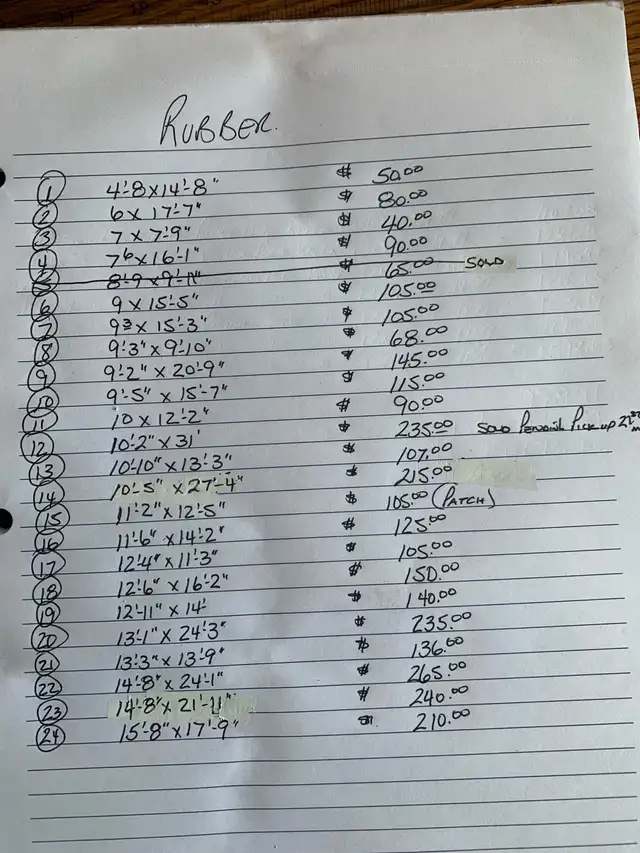 RUBBER.
1 4'-8 x 14'-8" $ 50.00
2 6 x 17'-7" $ 80.00
3 7 x 7'-9" $ 40.00
4 7 6 x 16'-1" $ 90.00
5 8'-9 x 9'-11" $ 65.00 SOLD
6 9 x 15'-5" $ 105.00
7 9 3 x 15'-3" $ 105.00
8 9'-3" x 9'-10" $ 68.00
9 9'-2" x 20'-9" $ 145.00
10 9'-5" x 15'-7" $ 115.00
11 10 x 12'-2" $ 90.00
12 10'-2" x 31' $ 235.00 SOLD Pending Pick up
13 10'-10" x 13'-3" $ 107.00
14 10'-5" x 27'-4" $ 215.00
15 11'-2" x 12'-5" $ 105.00 (PATCH)
16 11'-6" x 14'-2" $ 125.00
17 12'-4" x 11'-3" $ 105.00
18 12'-6" x 16'-2" $ 150.00
19 12'-11" x 14'- $ 140.00
20 13'-1" x 24'-3" $ 235.00
21 13'-3" x 13'-9" $ 136.00
22 14'-8" x 24'-1" $ 265.00
23 14'-8" x 21'-11" $ 240.00
24 15'-8" x 17'-9" $ 210.00